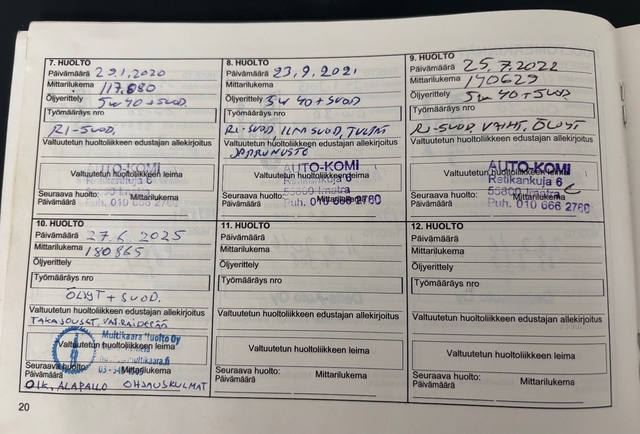 7. HUOLTO
Päivämäärä 29.1.2020
Mittarilukema 117.680
Öljyerittely 5w40+SUOD.
Työmääräys nro
RI-SUOD,
Valtuutetun huoltoliikkeen edustajan allekirjoitus
AUTO-KOMI
Valtuutetun huoltoliikkeen leima
Ratikankuja 6
55800 Imatra
Seuraava huolto:
Päivämäärä Mittarilukema
Puh. 010 666 2760
8. HUOLTO
Päivämäärä 23.9.2021
Mittarilukema
Öljyerittely 5w40+SUOD
Työmääräys nro
RI-SUOD, ILMASUOD, TULPAT
Valtuutetun huoltoliikkeen edustajan allekirjoitus
JARRUNESTE
AUTO-KOMI
Valtuutetun huoltoliikkeen leima
Ratikankuja 6
55800 Imatra
Seuraava huolto:
Päivämäärä Mittarilukema
Puh. 010 666 2760
9. HUOLTO
Päivämäärä 25.7.2022
Mittarilukema 140629
Öljyerittely 5w40+SUOD.
Työmääräys nro
RI-SUOD, VAIHT, ÖLJYT
Valtuutetun huoltoliikkeen edustajan allekirjoitus
AUTO-KOMI
Valtuutetun huoltoliikkeen leima
Ratikankuja 6
55800 Imatra
Seuraava huolto:
Päivämäärä Mittarilukema
Puh. 010 666 2760
10. HUOLTO
Päivämäärä 27.6.2025
Mittarilukema 180865
Öljyerittely
Työmääräys nro
ÖLJYT + SUOD.
Valtuutetun huoltoliikkeen edustajan allekirjoitus
TAKAJOUSET,
Multikaara Huolto Oy
Valtuutetun huoltoliikkeen leima
Seuraava huolto:
Päivämäärä Mittarilukema
OIK. ALAPALLO OHJAUSKULMAT
11. HUOLTO
Päivämäärä
Mittarilukema
Öljyerittely
Työmääräys nro
Valtuutetun huoltoliikkeen edustajan allekirjoitus
Valtuutetun huoltoliikkeen leima
Seuraava huolto:
Päivämäärä Mittarilukema
12. HUOLTO
Päivämäärä
Mittarilukema
Öljyerittely
Työmääräys nro
Valtuutetun huoltoliikkeen edustajan allekirjoitus
Valtuutetun huoltoliikkeen leima
Seuraava huolto:
Päivämäärä Mittarilukema
20